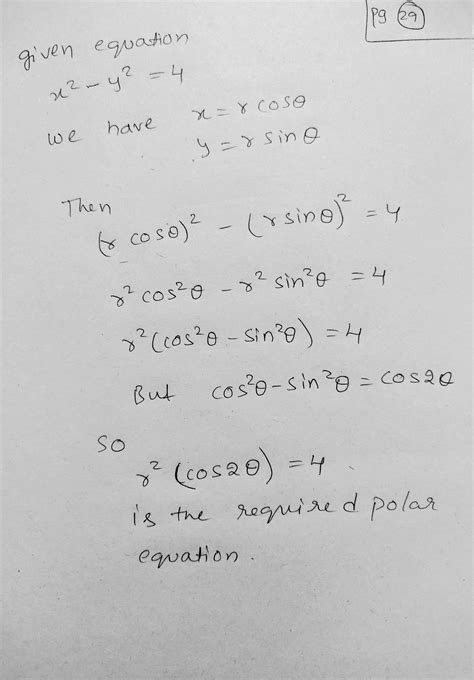 Pg 29
given equation
x² - y² = 4
we have x = r cosθ
y = r sinθ
Then
(r cosθ)² - (r sinθ)² = 4
r² cos²θ - r² sin²θ = 4
r² (cos²θ - sin²θ) = 4
But cos²θ - sin²θ = cos2θ
so
r² (cos2θ) = 4.
is the required polar
equation.